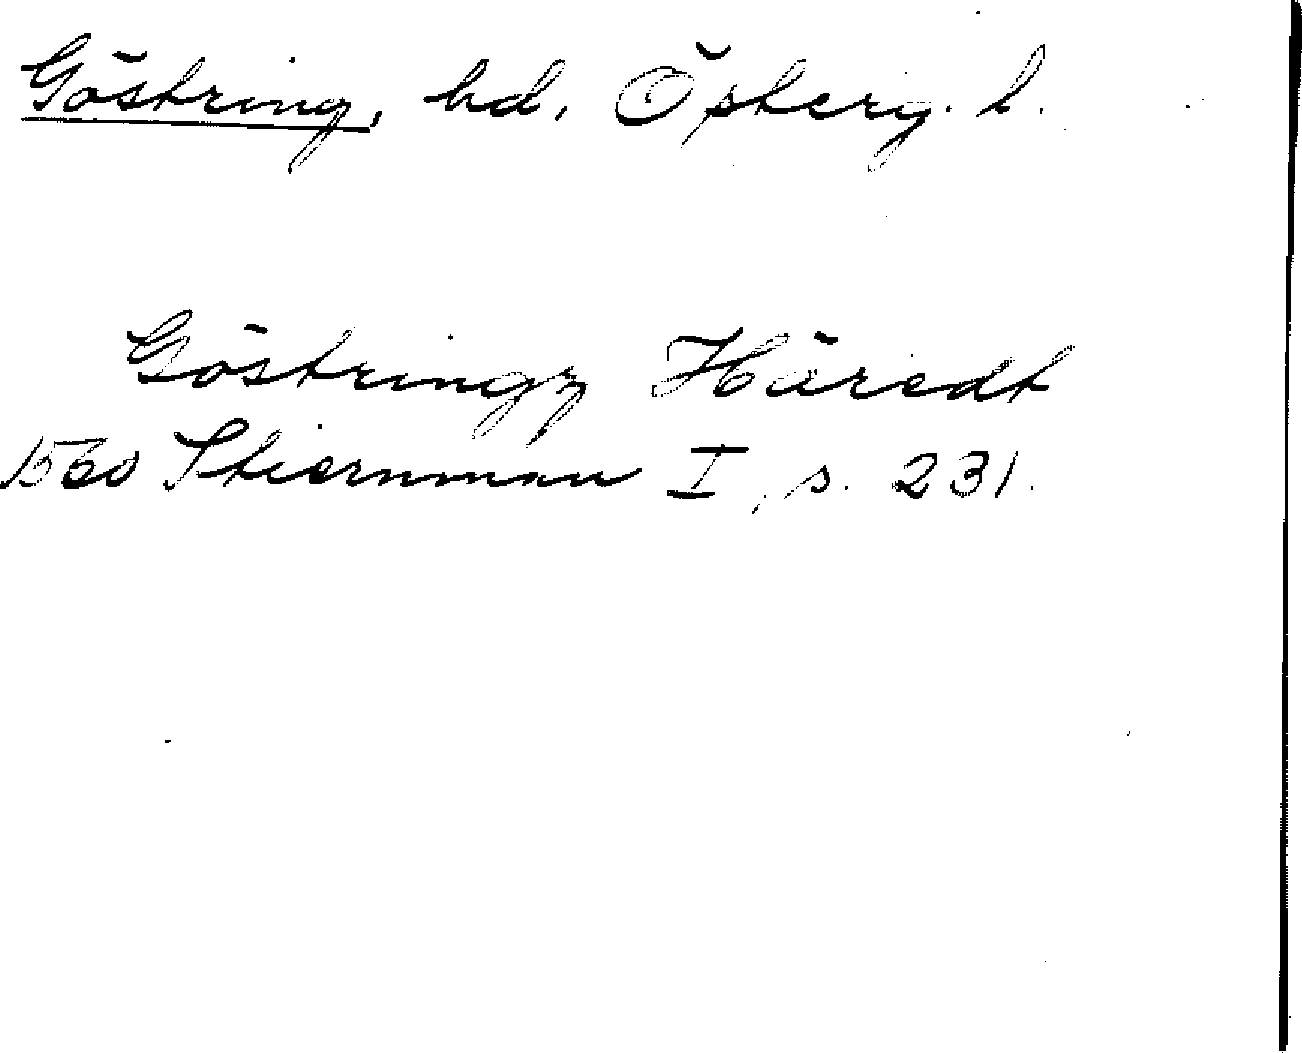 Göstring, hd, Österg. l.
Göstringz Häredt
1560 Stiernman I, s. 231.